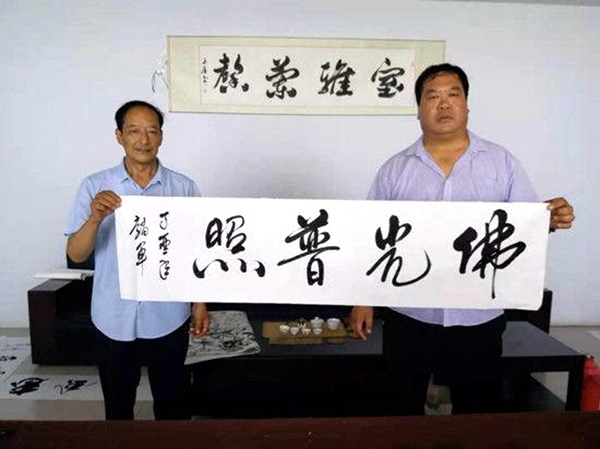 室雅蘭馨
佛光普照
丁酉年